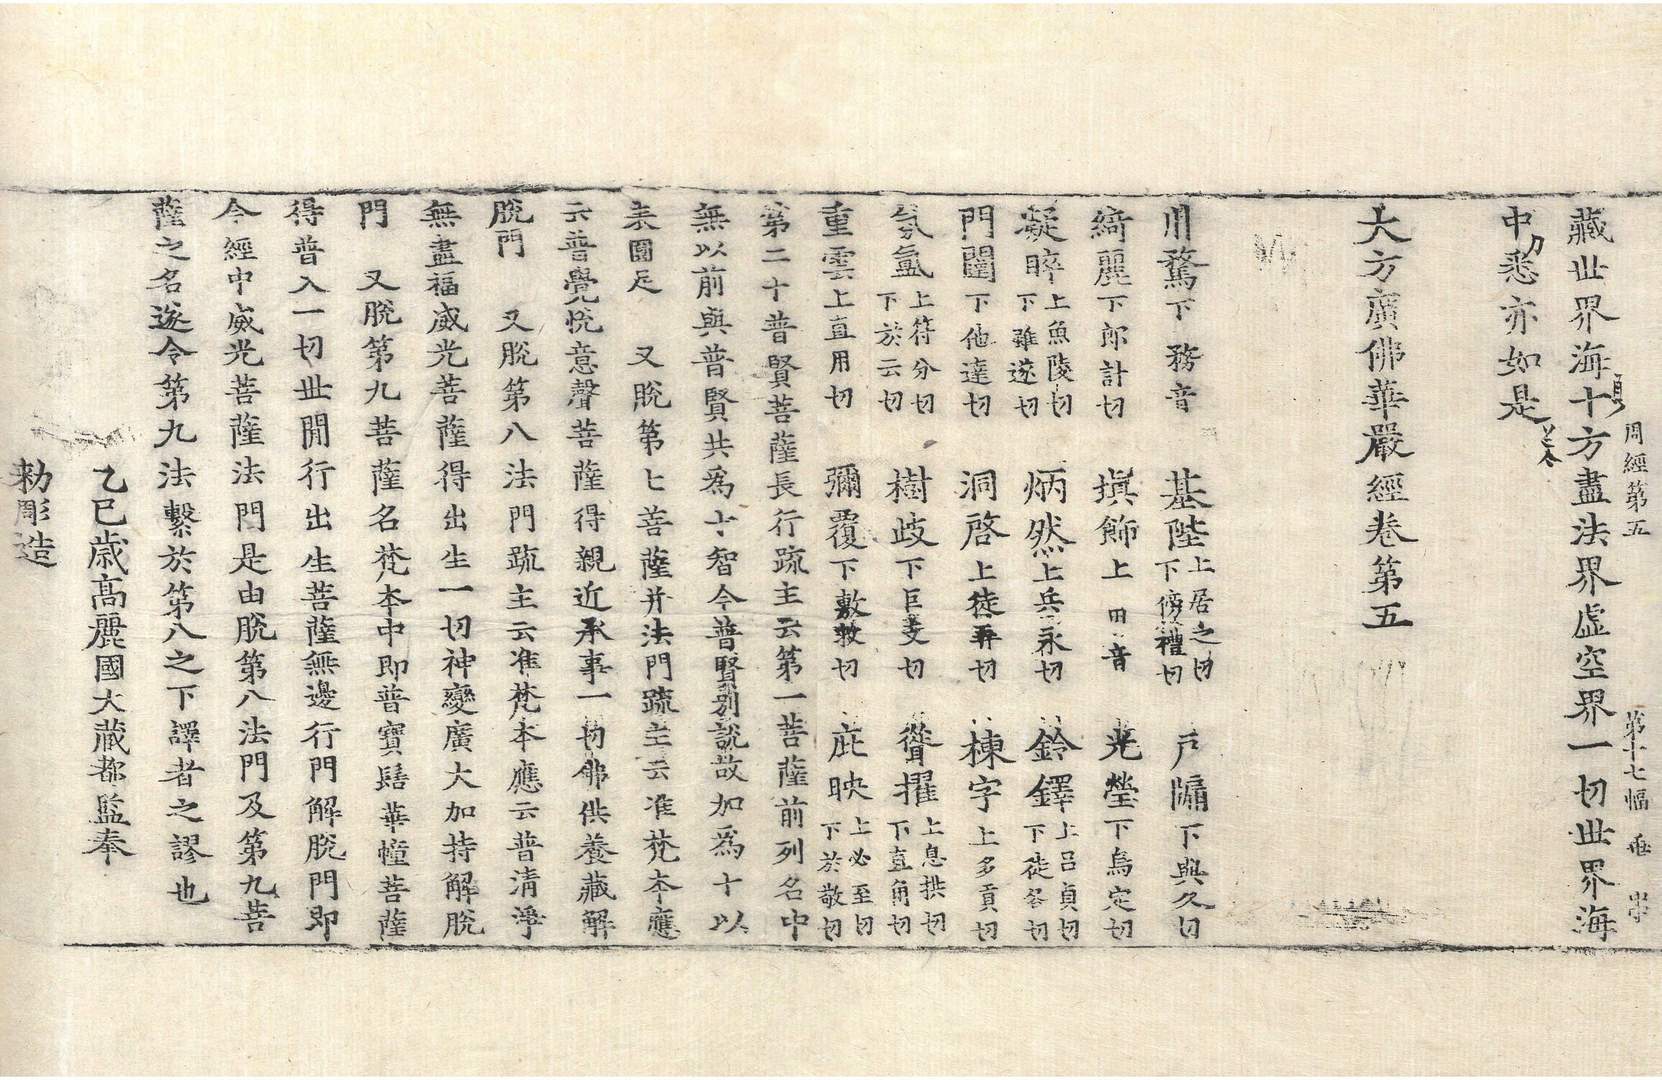 周經第五 第十七幅 垂 宗
藏世界海十方盡法界虛空界一切世界海
中悉亦如是
大方廣佛華嚴經卷第五
川騖下務音 基陛上居之切下傍禮切 戶牖下與久切
綺麗下郎計切 塡飾上田音 光瑩下烏定切
凝睟上魚陵切下雖遂切 炳然上兵永切 鈴鐸上呂貞切下徒各切
門闥下他達切 洞啓上徒弄切 棟字上多貢切
氛氳上符分切下於云切 樹岐下巨支切 聳擢上息拱切下直角切
重雲上直用切 彌覆下敷救切 庇映上必至切下於敬切
第二十普賢菩薩長行疏主云第一菩薩前列名中
無以前與普賢共爲十智今普賢別說故加爲十以
表圓足 又脫第七菩薩幷法門疏主云准梵本應
云普覺悅意聲菩薩得親近承事一切佛供養藏解
脫門 又脫第八法門疏主云准梵本應云普清淨
無盡福威光菩薩得出生一切神變廣大加持解脫
門 又脫第九菩薩名梵本中即普寶髻華幢菩薩
得普入一切世間行出生菩薩無邊行門解脫門即
今經中威光菩薩法門是由脫第八法門及第九菩
薩之名遂令第九法繫於第八之下譯者之謬也
乙巳歲高麗國大藏都監奉
勅彫造